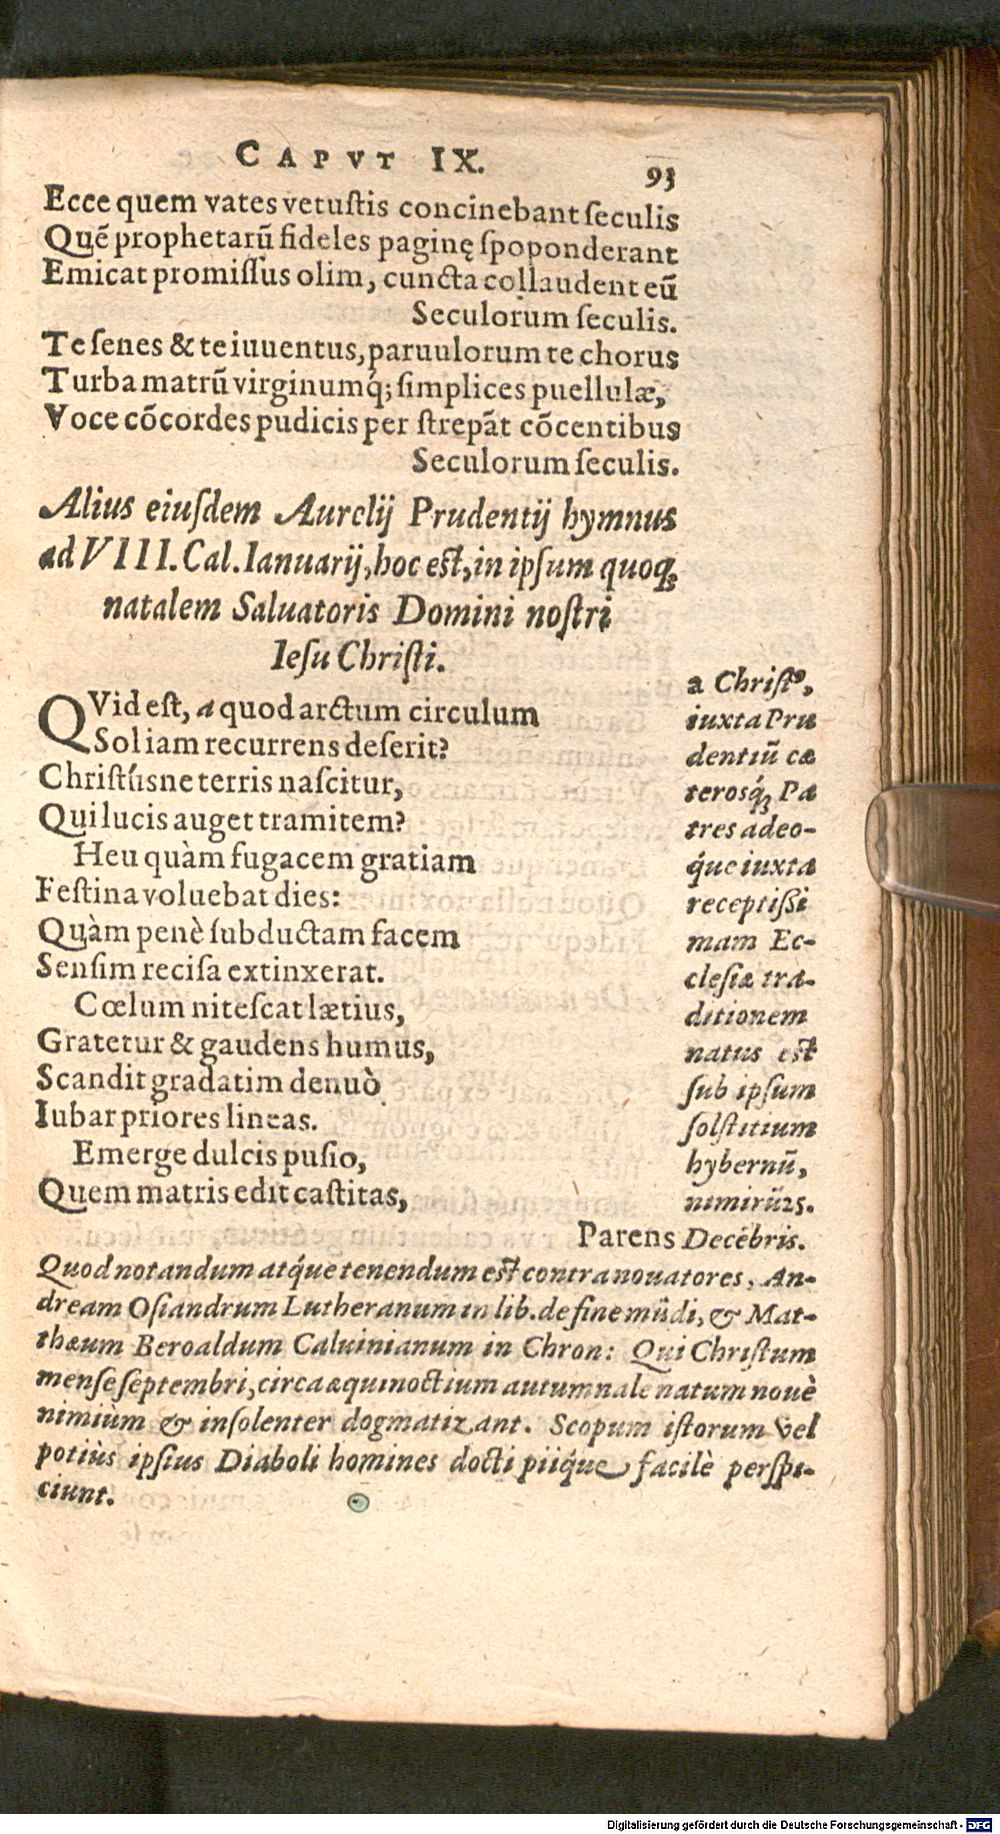 CAPVT IX.
93
Ecce quem vates vetustis concinebant seculis
Quē prophetarū fideles paginę spoponderant
Emicat promissus olim, cuncta collaudent eū
Seculorum seculis.
Te senes & te iuuentus, paruulorum te chorus
Turba matrū virginumq́; simplices puellulæ,
Voce cōcordes pudicis per strepāt cōcentibus
Seculorum seculis.
Alius eiusdem Aurelij Prudentij hymnus
ad VIII. Cal. Ianuarij, hoc est, in ipsum quoqꝫ
natalem Saluatoris Domini nostri
Iesu Christi.
QVid est, a quod arctum circulum
Sol iam recurrens deserit?
Christúsne terris nascitur,
Qui lucis auget tramitem?
Heu quàm fugacem gratiam
Festina voluebat dies:
Quàm penè subductam facem
Sensim recisa extinxerat.
Cœlum nitescat lætius,
Gratetur & gaudens humus,
Scandit gradatim denuò
Iubar priores lineas.
Emerge dulcis pusio,
Quem matris edit castitas,
Parens
a Christꝰ,
iuxta Pru
dentiū cæ
terosq́ꝫ Pa
tres adeo-
q́ue iuxta
receptissi
mam Ec-
clesiæ tra-
ditionem
natus est
sub ipsum
solstitium
hybernū,
nimirū 25.
Decēbris.
Quod notandum atq́ue tenendum est contra nouatores, An-
dream Osiandrum Lutheranum in lib. de fine mūdi, & Mat-
thæum Beroaldum Caluinianum in Chron: Qui Christum
mense septembri, circa æquinoctium autumnale natum nouè
nimiùm & insolenter dogmatizant. Scopum istorum vel
potiùs ipsius Diaboli homines docti piiq́ue facilè perspi-
ciunt.
Digitalisierung gefördert durch die Deutsche Forschungsgemeinschaft - DFG